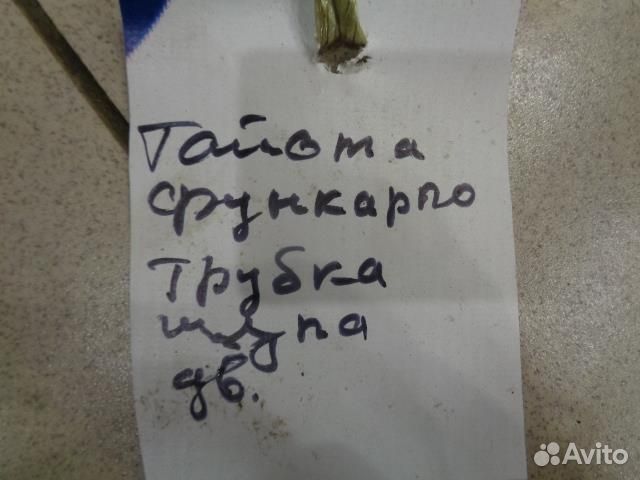 Тайота
функарго
трубка
щупа
дв.
Avito